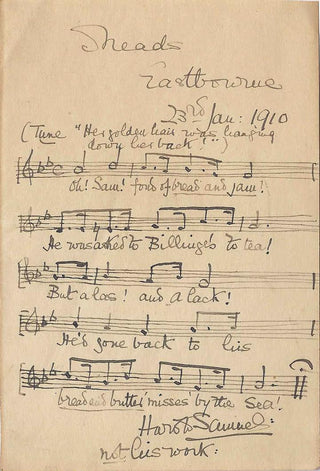 Meads
Eastbourne
23rd Jan: 1910
(Tune "Her golden hair was hanging
down her back!")
Oh! Sam! fond of bread and jam!
He was asked to Billing's to tea!
But alas! and alack!
He'd gone back to his
bread and butter misses by the Sea!
Harold Samuel:
not his work: